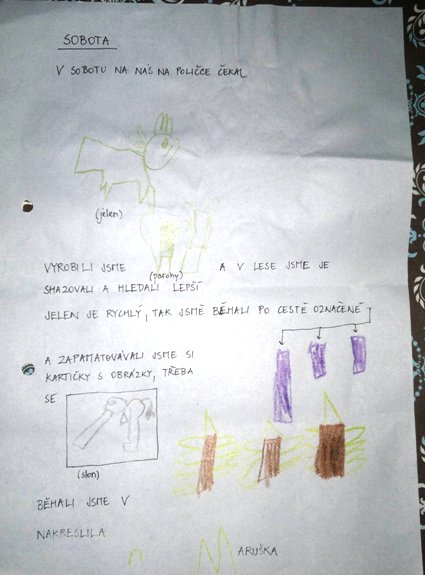 SOBOTA
V SOBOTU NA NÁS NA POLIČCE ČEKAL
(jelen)
VYROBILI JSME (parohy) A V LESE JSME JE
SHAZOVALI A HLEDALI LEPŠÍ
JELEN JE RYCHLÝ, TAK JSME BĚHALI PO CESTĚ OZNAČENÉ
A ZAPAMATOVÁVALI JSME SI
KARTIČKY S OBRÁZKY, TŘEBA
SE
(slon)
BĚHALI JSME V
NAKRESLILA MARUŠKA